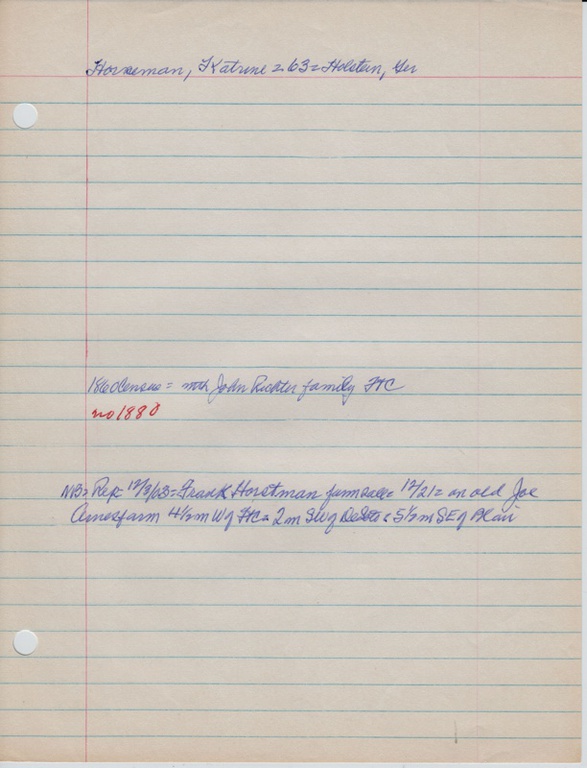 Horneman, Katrine = 63 = Holstein, Ger
1860 Census = with John Richter family FtC
no 1880
NB = Rep = 12/3/03 = Frank Horstman farm sale = 12/21 = on old Joe
farm 4½ m W of FtC = 2 m SW of DeSoto & 5½ m SE of Blair